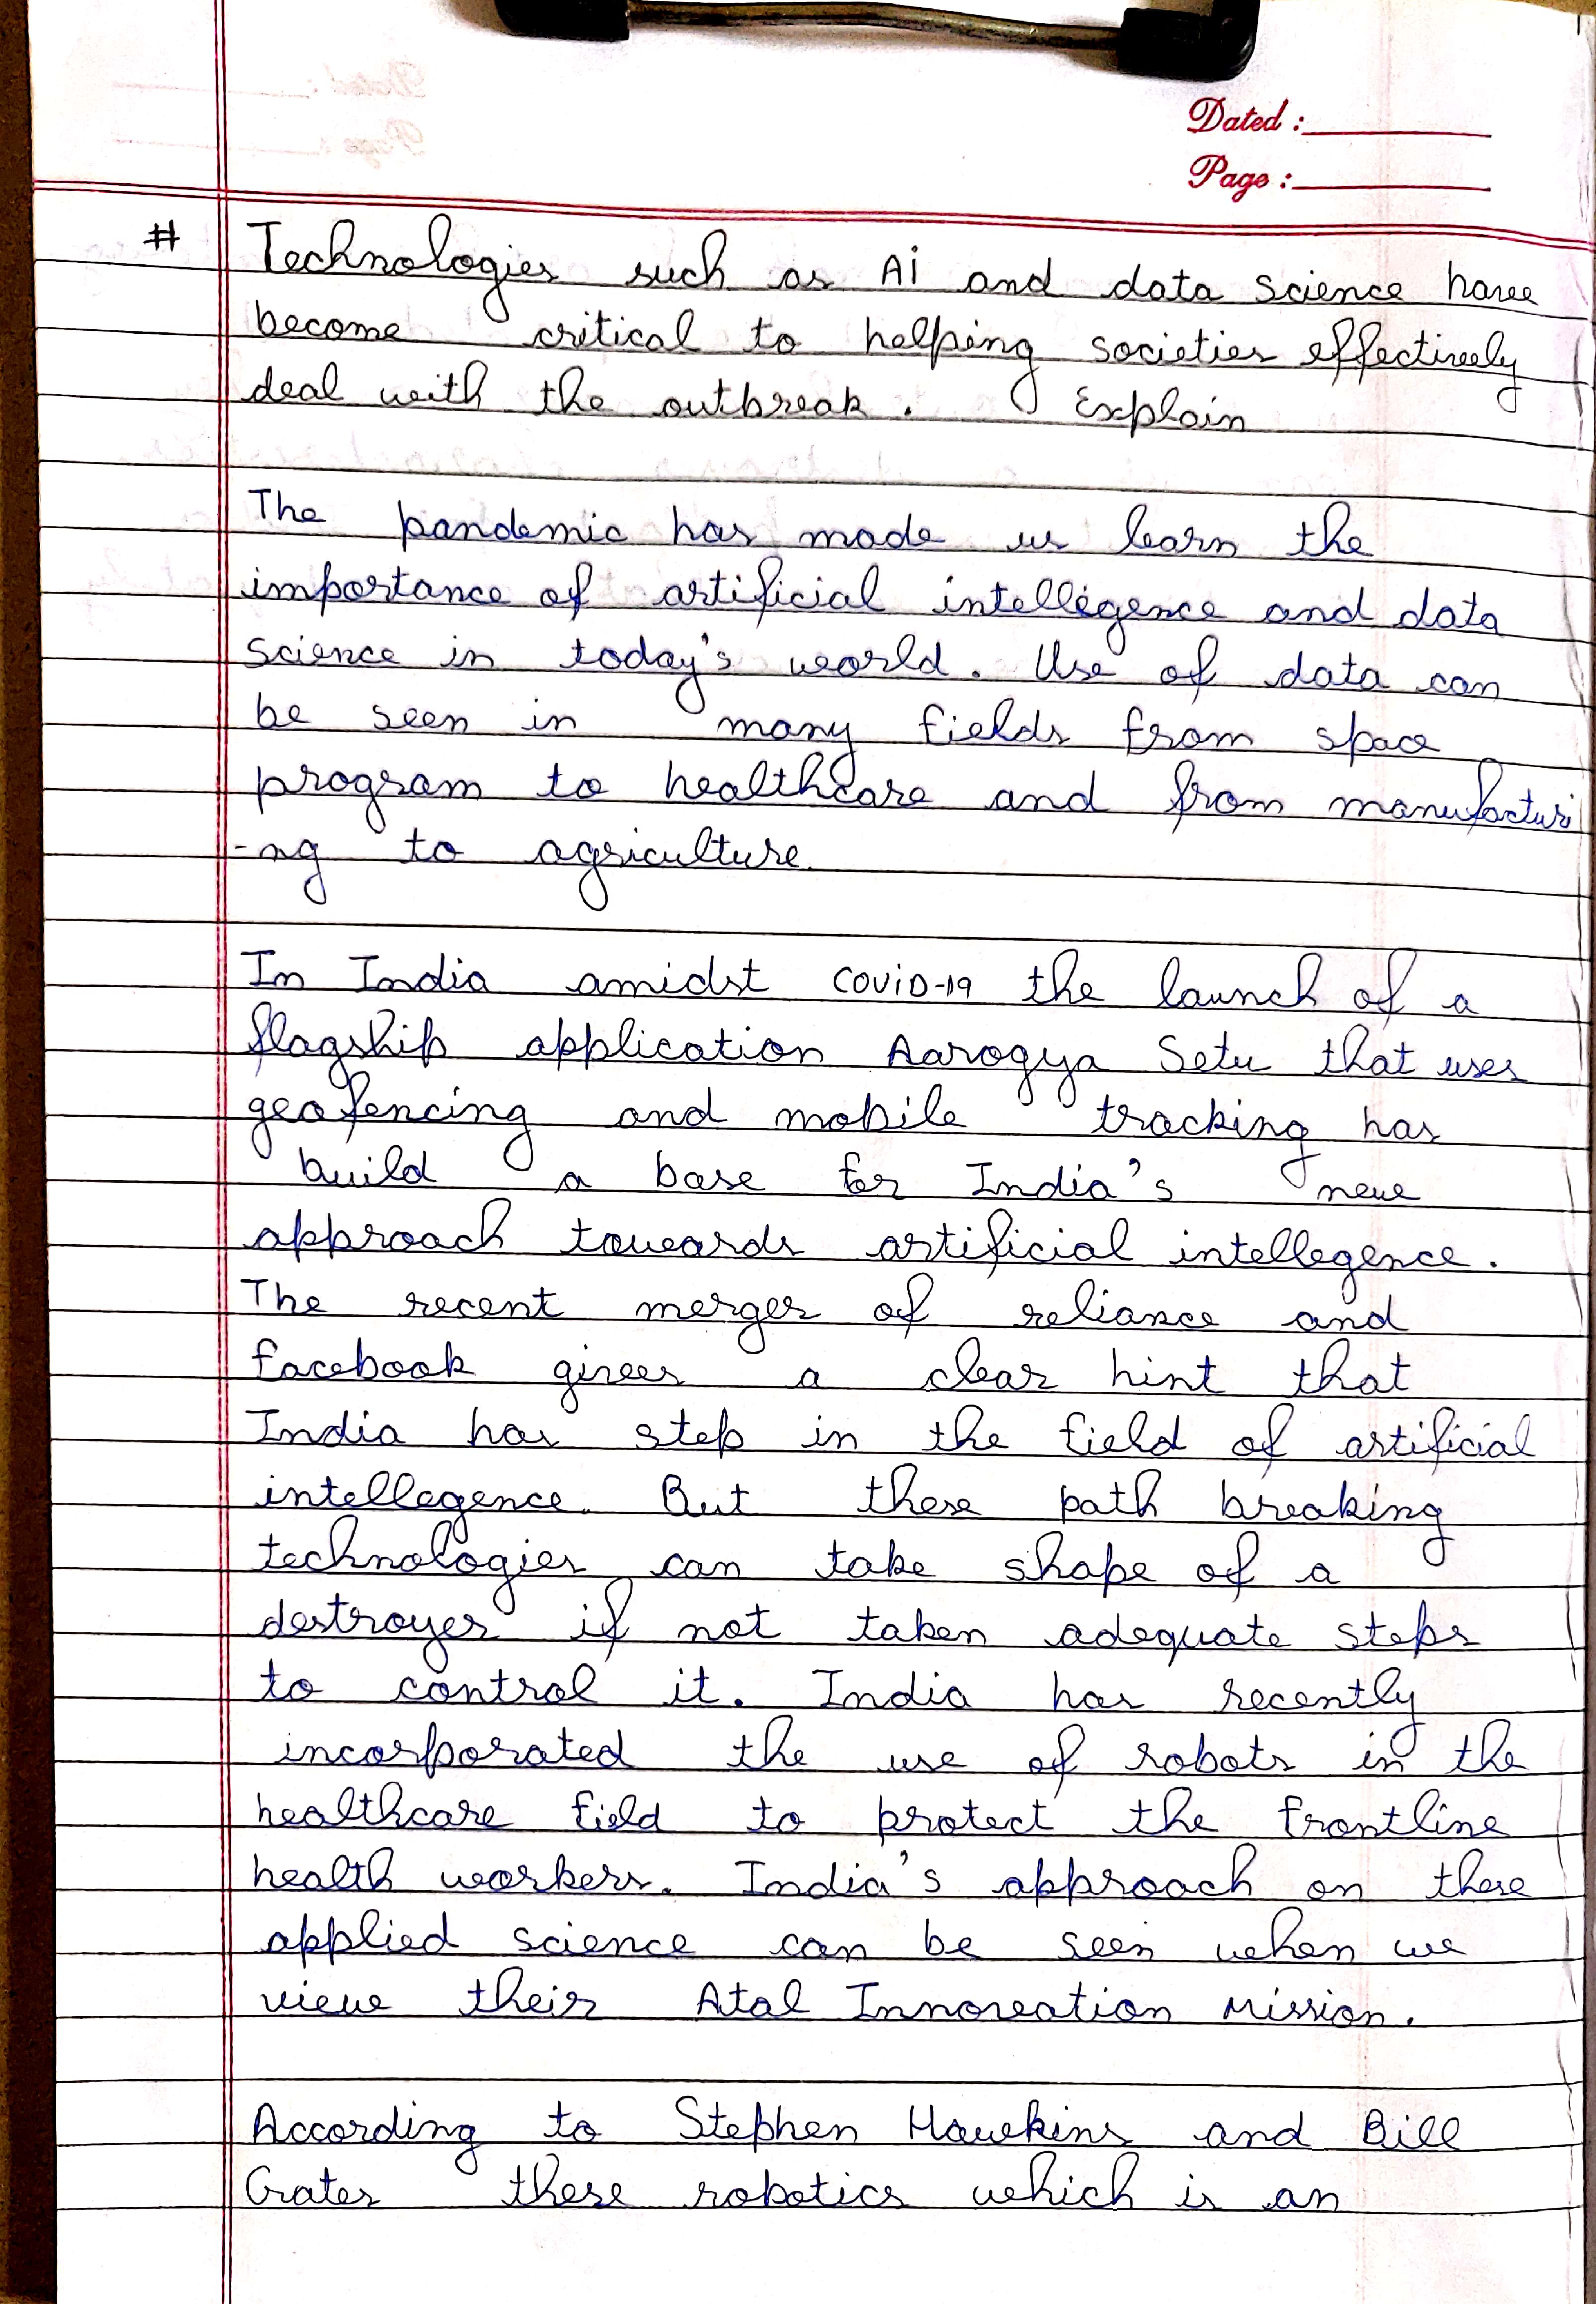 Dated :
Page :
# Technologies such as Ai and data science have
become critical to helping societies effectively
deal with the outbreak. Explain
The pandemic has made us learn the
importance of artificial intellegence and data
science in today's world. Use of data can
be seen in many fields from space
program to healthcare and from manufacturi
-ng to agriculture.
In India amidst COVID-19 the launch of a
flagship application Aarogya Setu that uses
geofencing and mobile tracking has
build a base for India's new
approach towards artificial intellegence.
The recent merger of reliance and
facebook gives a clear hint that
India has step in the field of artificial
intellegence. But these path breaking
technologies can take shape of a
destroyer if not taken adequate steps
to control it. India has recently
incorporated the use of robots in the
healthcare field to protect the frontline
health workers. India's approach on these
applied science can be seen when we
view their Atal Innovation Mission.
According to Stephen Hawkins and Bill
Grates these robotics which is an